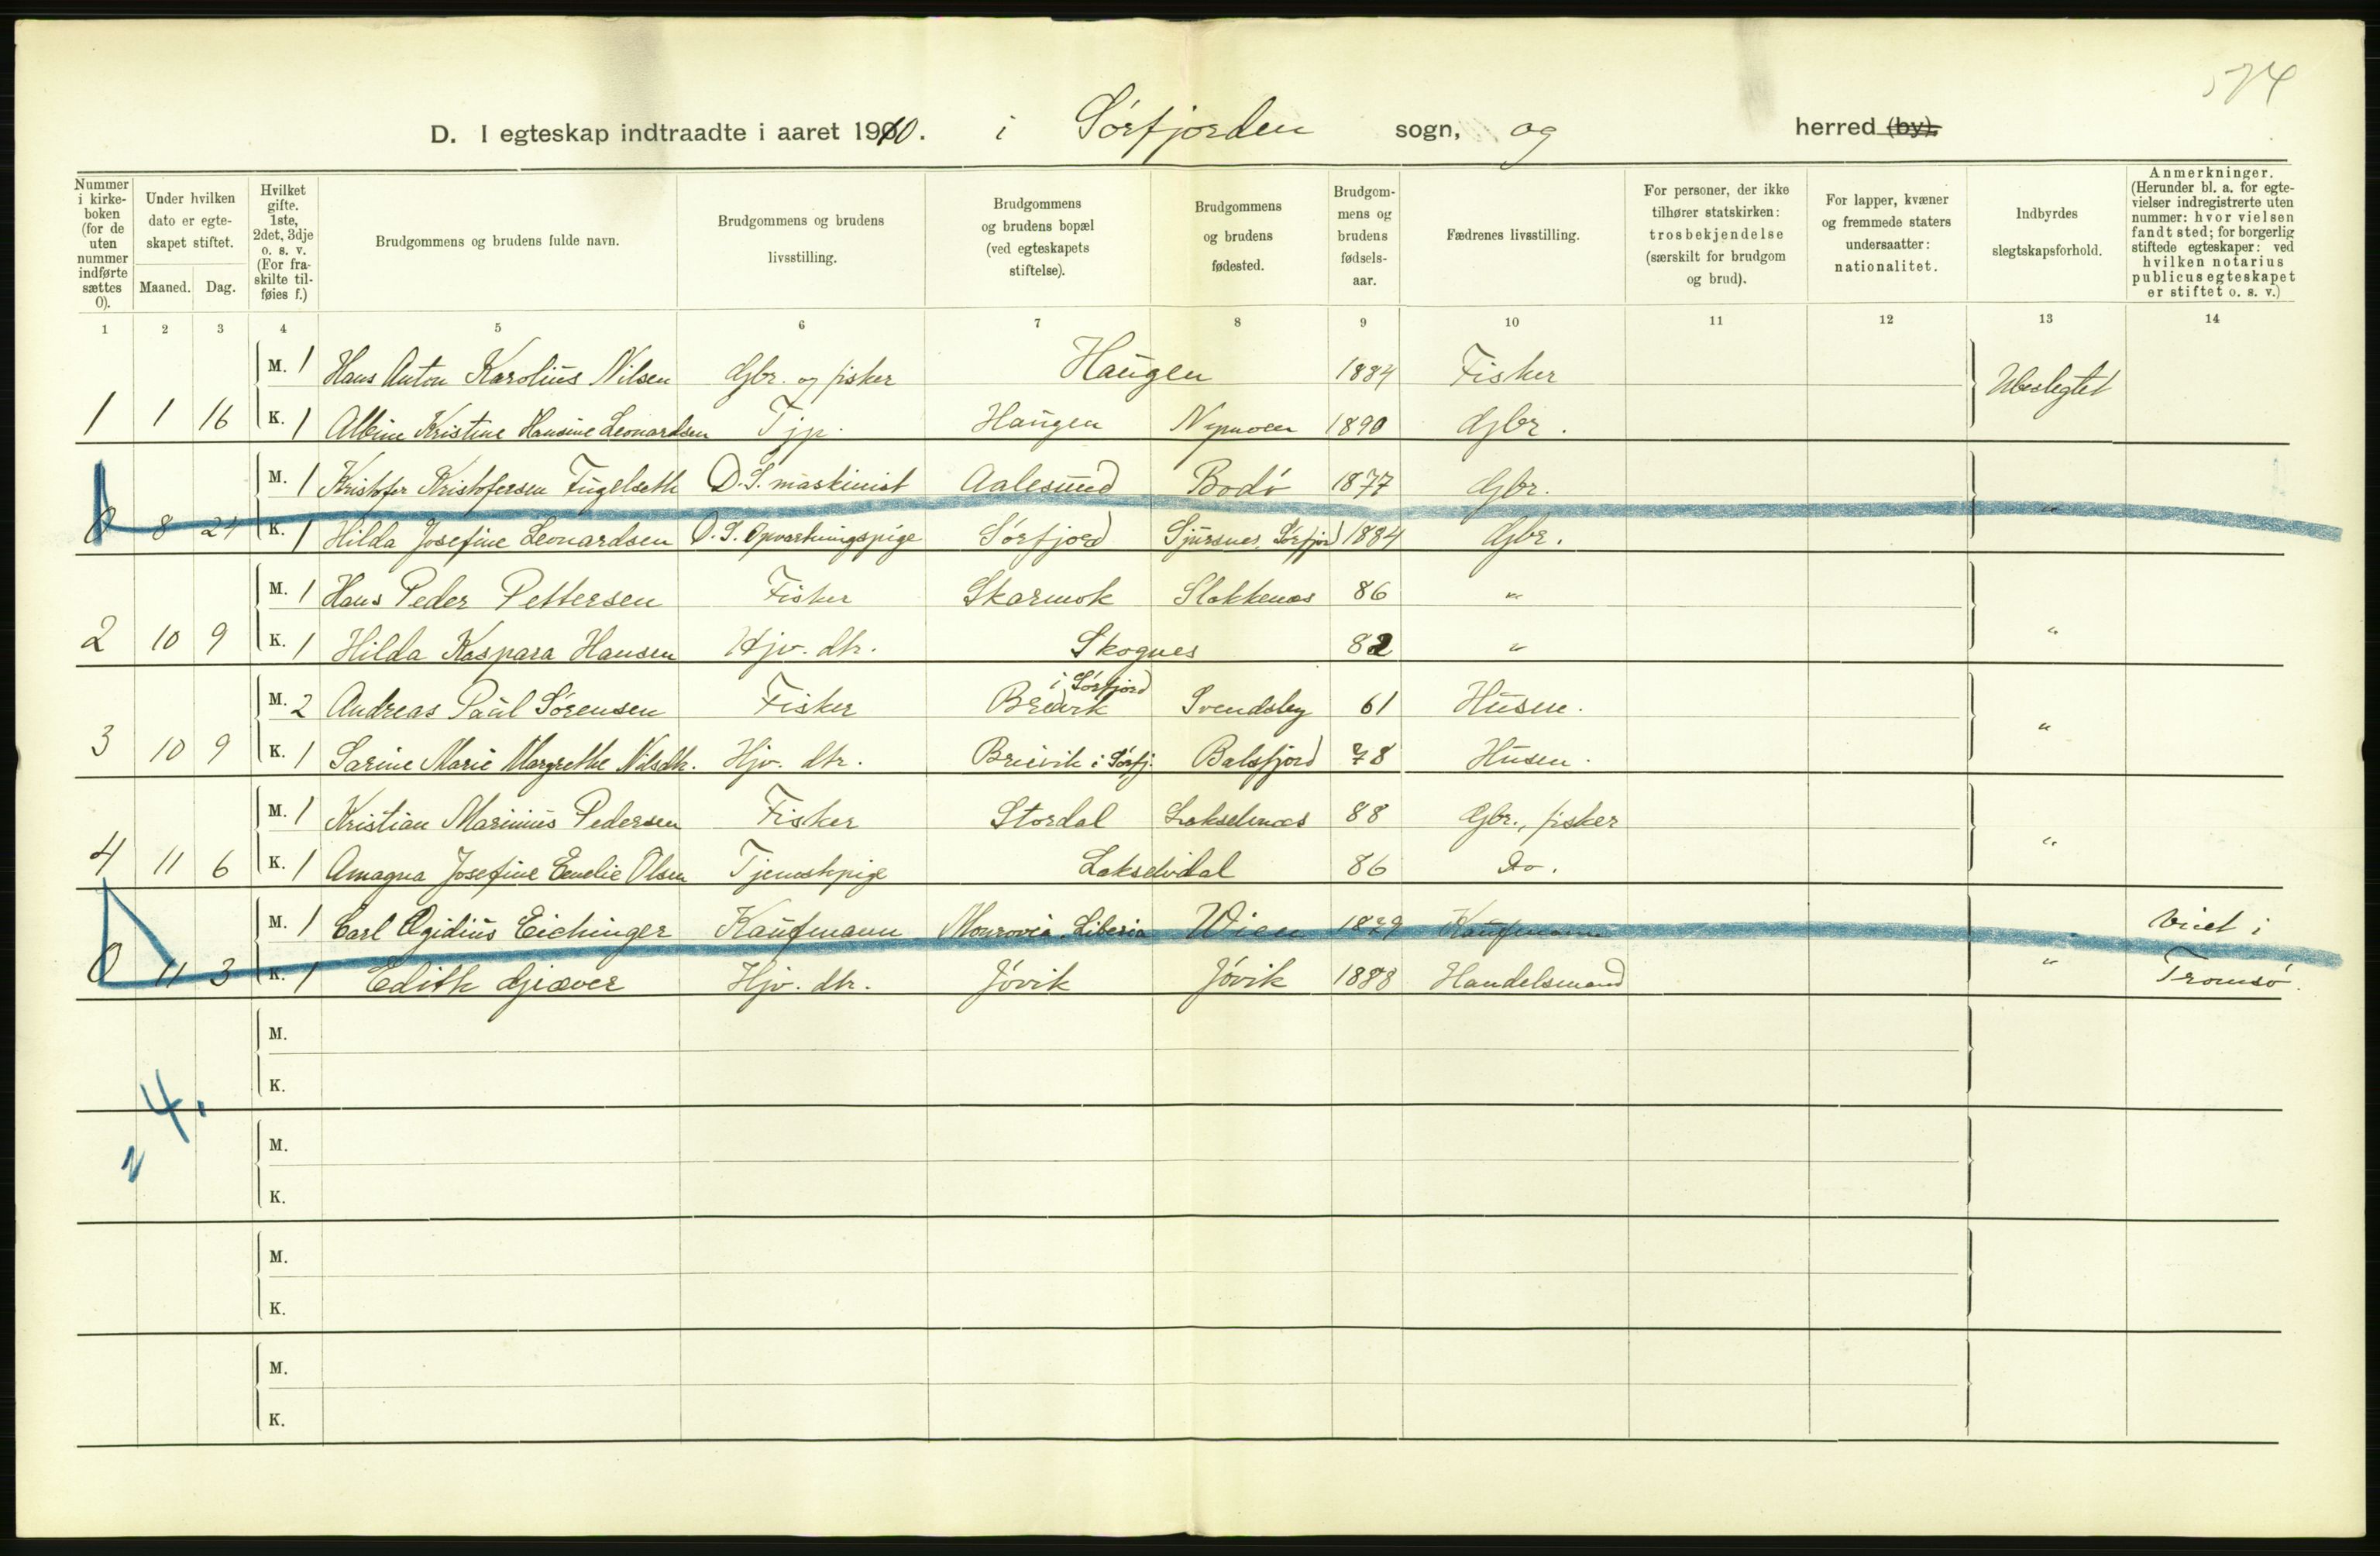 574
D. I egteskap indtraadte i aaret 1910. i Sørfjorden sogn, og herred (by).
Nummer i kirkeboken (for de uten nummer indførte sættes 0).
Under hvilken dato er egteskapet stiftet.
Maaned. Dag.
Hvilket gifte. 1ste, 2det, 3dje o. s. v. (For fraskilte tilføies f.)
Brudgommens og brudens fulde navn.
Brudgommens og brudens livsstilling.
Brudgommens og brudens bopæl (ved egteskapets stiftelse).
Brudgommens og brudens fødested.
Brudgommens og brudens fødselsaar.
Fædrenes livsstilling.
For personer, der ikke tilhører statskirken: trosbekjendelse (særskilt for brudgom og brud).
For lapper, kvæner og fremmede staters undersaatter: nationalitet.
Indbyrdes slegtskapsforhold.
Anmerkninger. (Herunder bl. a. for egtevielser indregistrerte uten nummer: hvor vielsen fandt sted; for borgerlig stiftede egteskaper: ved hvilken notarius publicus egteskapet er stiftet o. s. v.)
1 2 3 4 5 6 7 8 9 10 11 12 13 14
M. 1 Hans Anton Karolius Nilsen Gbr. og fisker Haugen 1884 Fisker Ubeslegtet
1 1 16 K. 1 Albine Kristine Hansine Leonardsen Tjp. Haugen Nymoen 1890 Gbr.
M. 1 Kristofer Kristofersen Fugelseth D.S. maskinist Aalesund Bodø 1877 Gbr. "
0 8 24 K. 1 Hilda Josefine Leonardsen D.S. Opvartningspige Sørfjord Sjursnes, Sørfjord 1884 Gbr.
M. 1 Hans Peder Pettersen Fisker Skarmok Slokkenes 86 "
2 10 9 K. 1 Hilda Kaspara Hansen Hjv. dtr. Skognes 82 " "
i Sørfjord
M. 2 Andreas Paul Sørensen Fisker Breivik Svendsby 61 Husm. "
3 10 9 K. 1 Sarine Marie Margrethe Nilsdtr. Hjv. dtr. Breivik i Sørfj. Balsfjord 78 Husm.
M. 1 Kristian Marinius Pedersen Fisker Stordal Lakselvnes 88 Gbr., fisker "
4 11 6 K. 1 Amagna Josefine Emelie Olsen Tjenestepige Lakselvdal 86 Do.
M. 1 Carl Ægidius Eichinger Kaufmann Monrovia, Liberia Wien 1879 Kaufmann Viet i
0 11 3 K. 1 Edith Giæver Hjv. dtr. Jøvik Jøvik 1888 Handelsmand " Tromsø.
M.
K.
4.
M.
K.
M.
K.
M.
K.